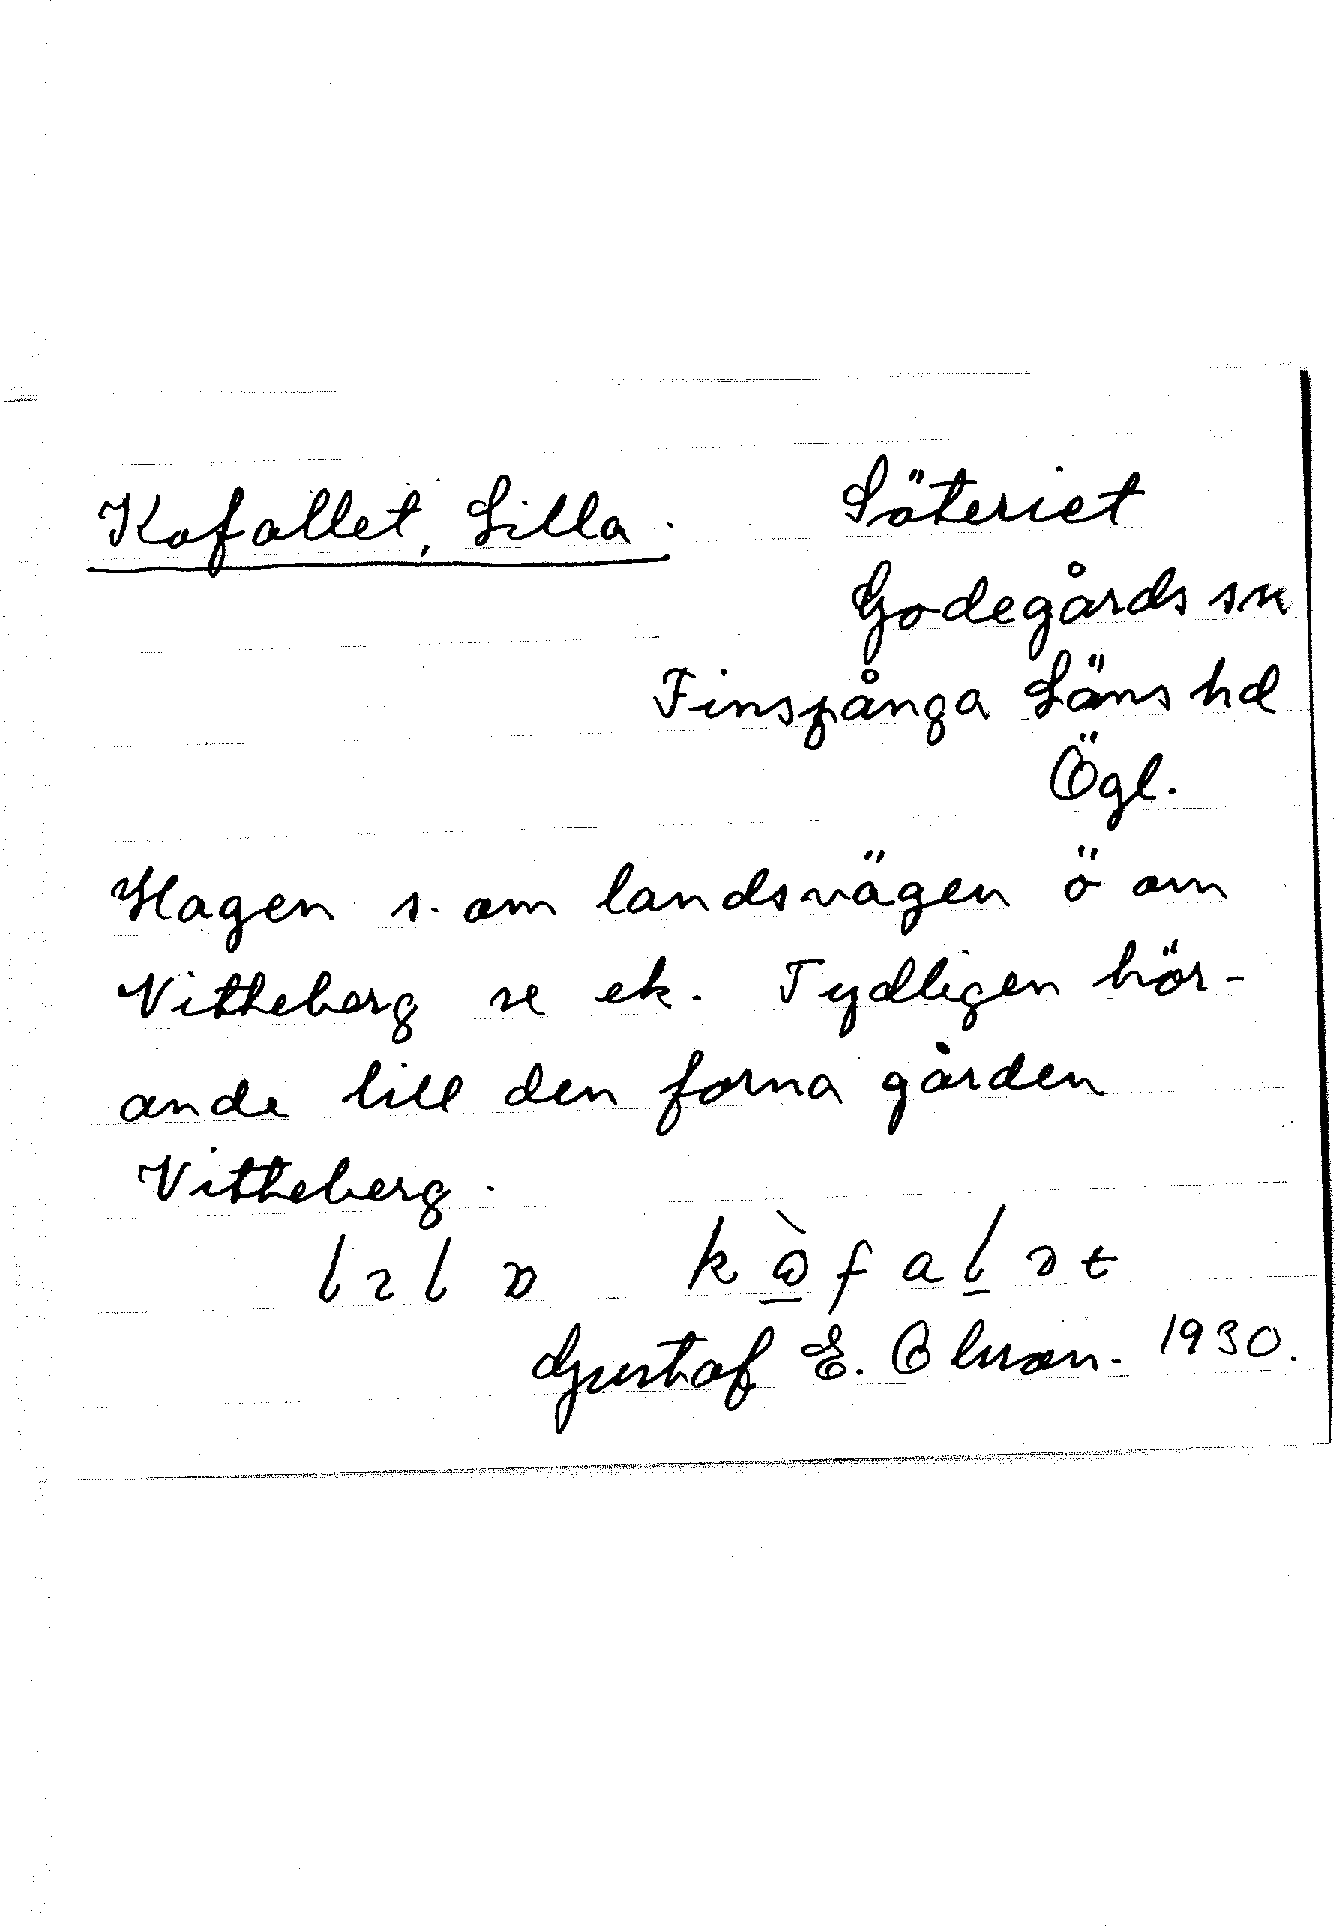 Kofallet, Lilla.
Säteriet
Godegårds sn
Finspånga Läns hd
Ögl.
Hagen s. om landsvägen ö om
Vitteberg se ek. Tydligen hör-
ande till den forna gården
Vitteberg.
Gustaf E. Olsson. 1930.